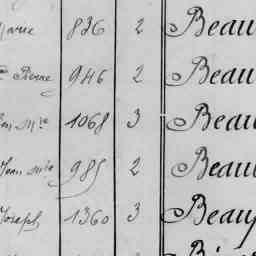 Marie 836 2 Beau
Pierre 946 2 Beau
1068 3 Beau
985 2 Beau
Joseph 1360 3 Beau